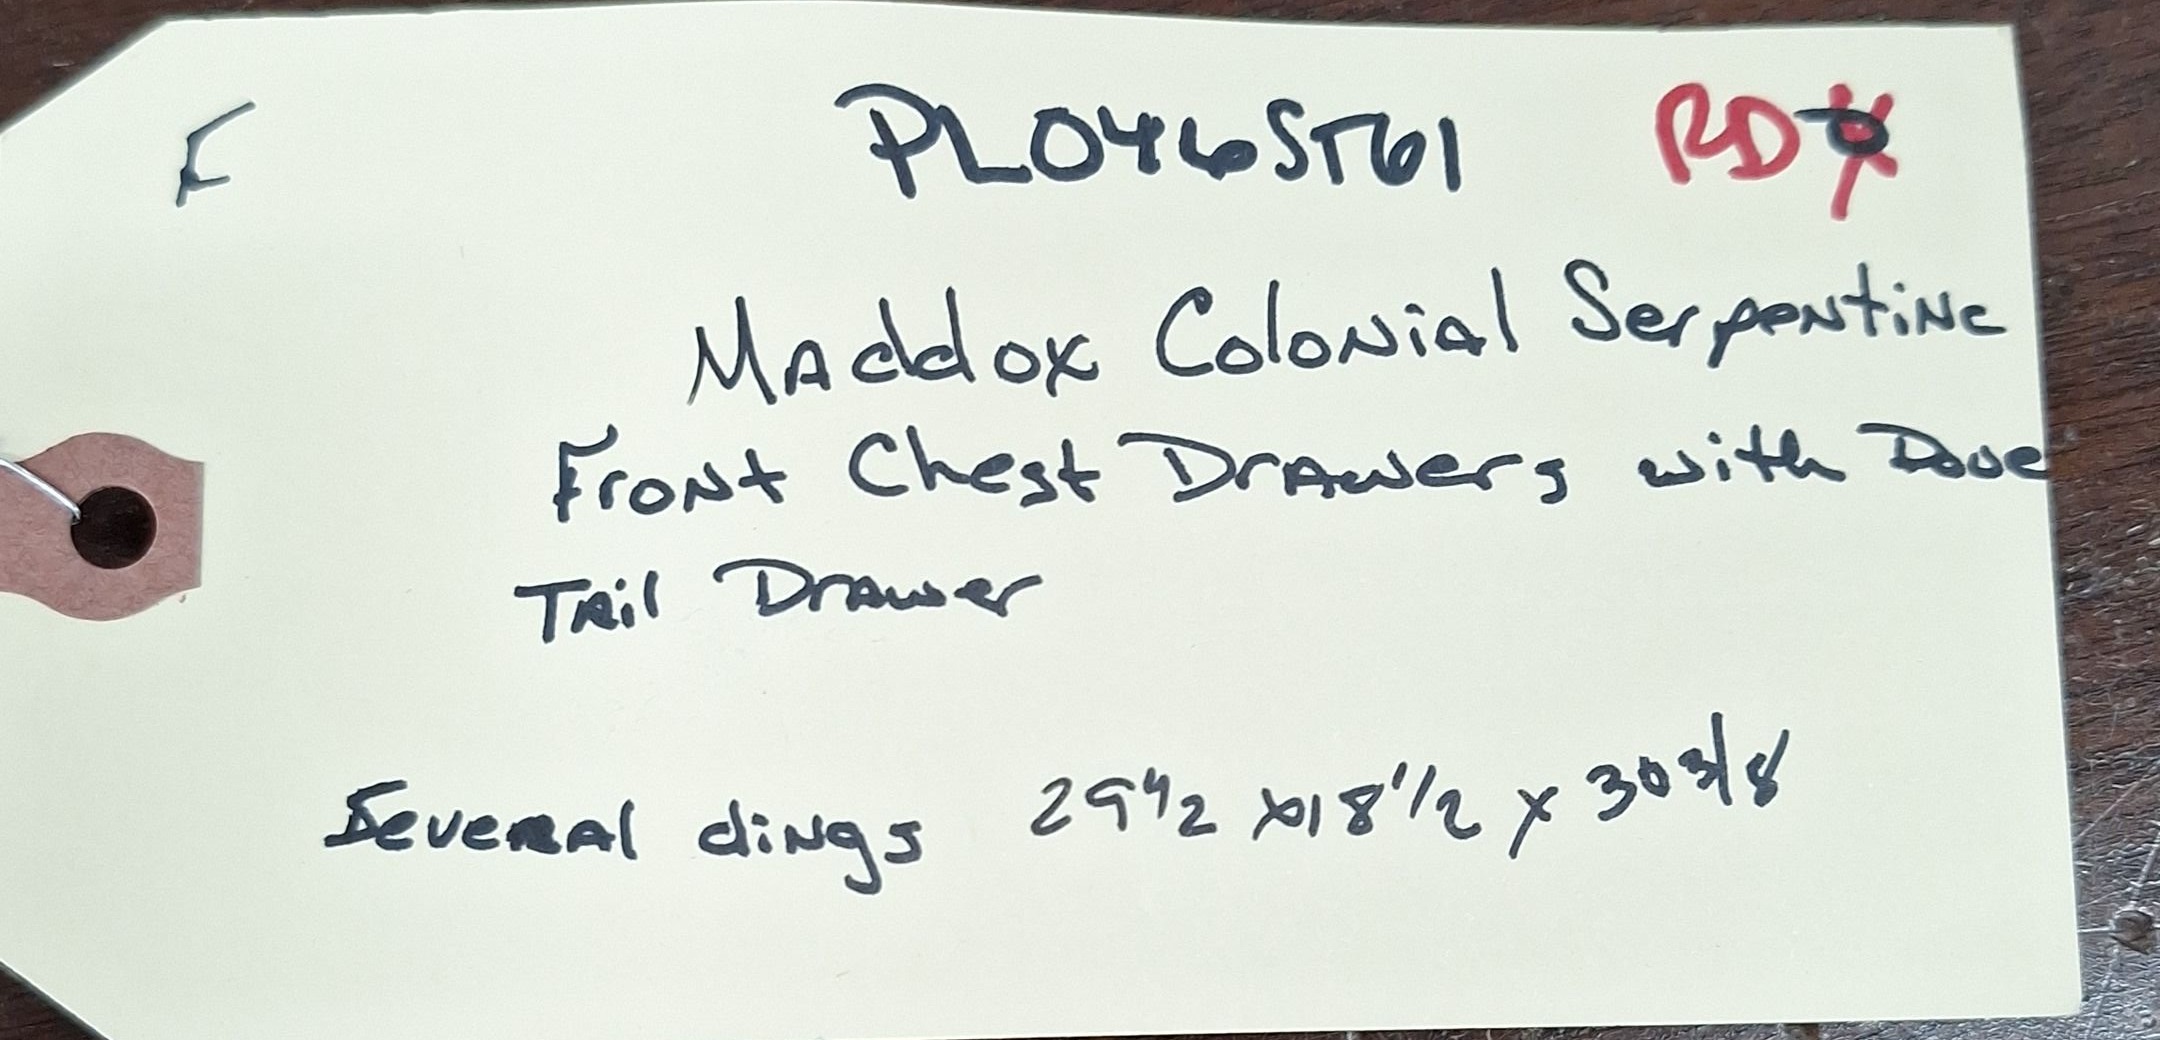 F PL046ST61 RD
Maddox Colonial Serpentine
Front Chest Drawers with Dove
Tail Drawer
Several dings 29 1/2 x 18 1/2 x 30 3/8